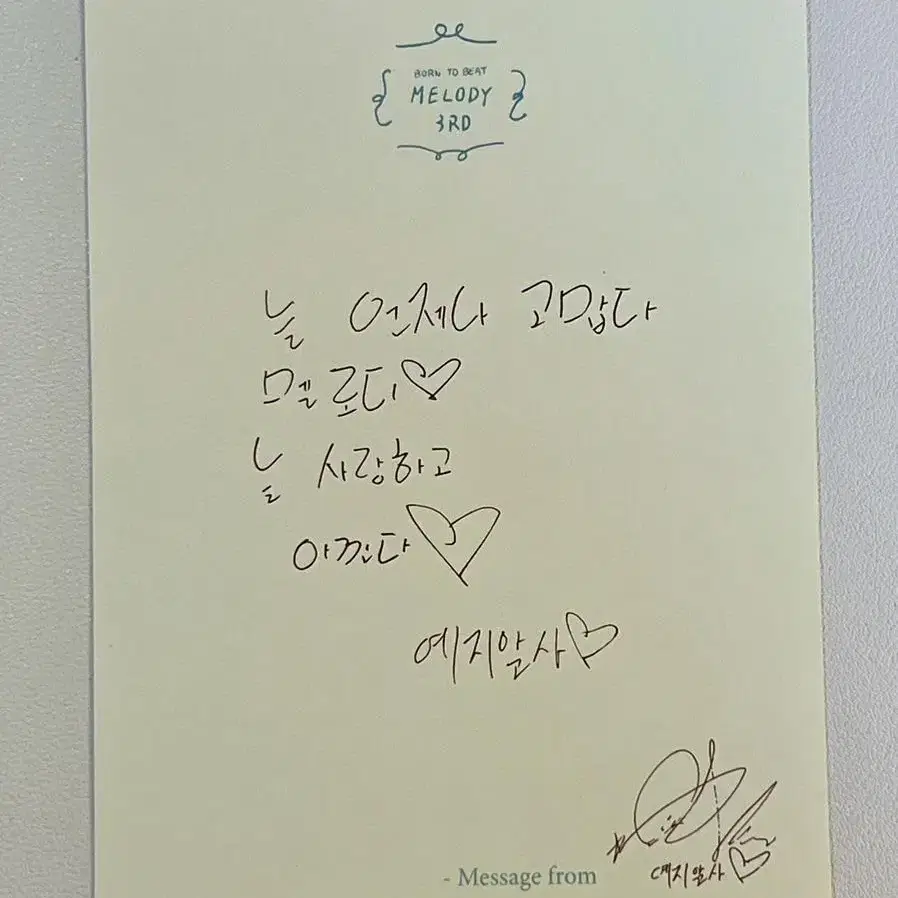 BORN TO BEAT
MELODY
3RD
늘 언제나 고맙다
멜로디♡
늘 사랑하고
아낀다♡
예지앞사♡
- Message from
예지앞사♡